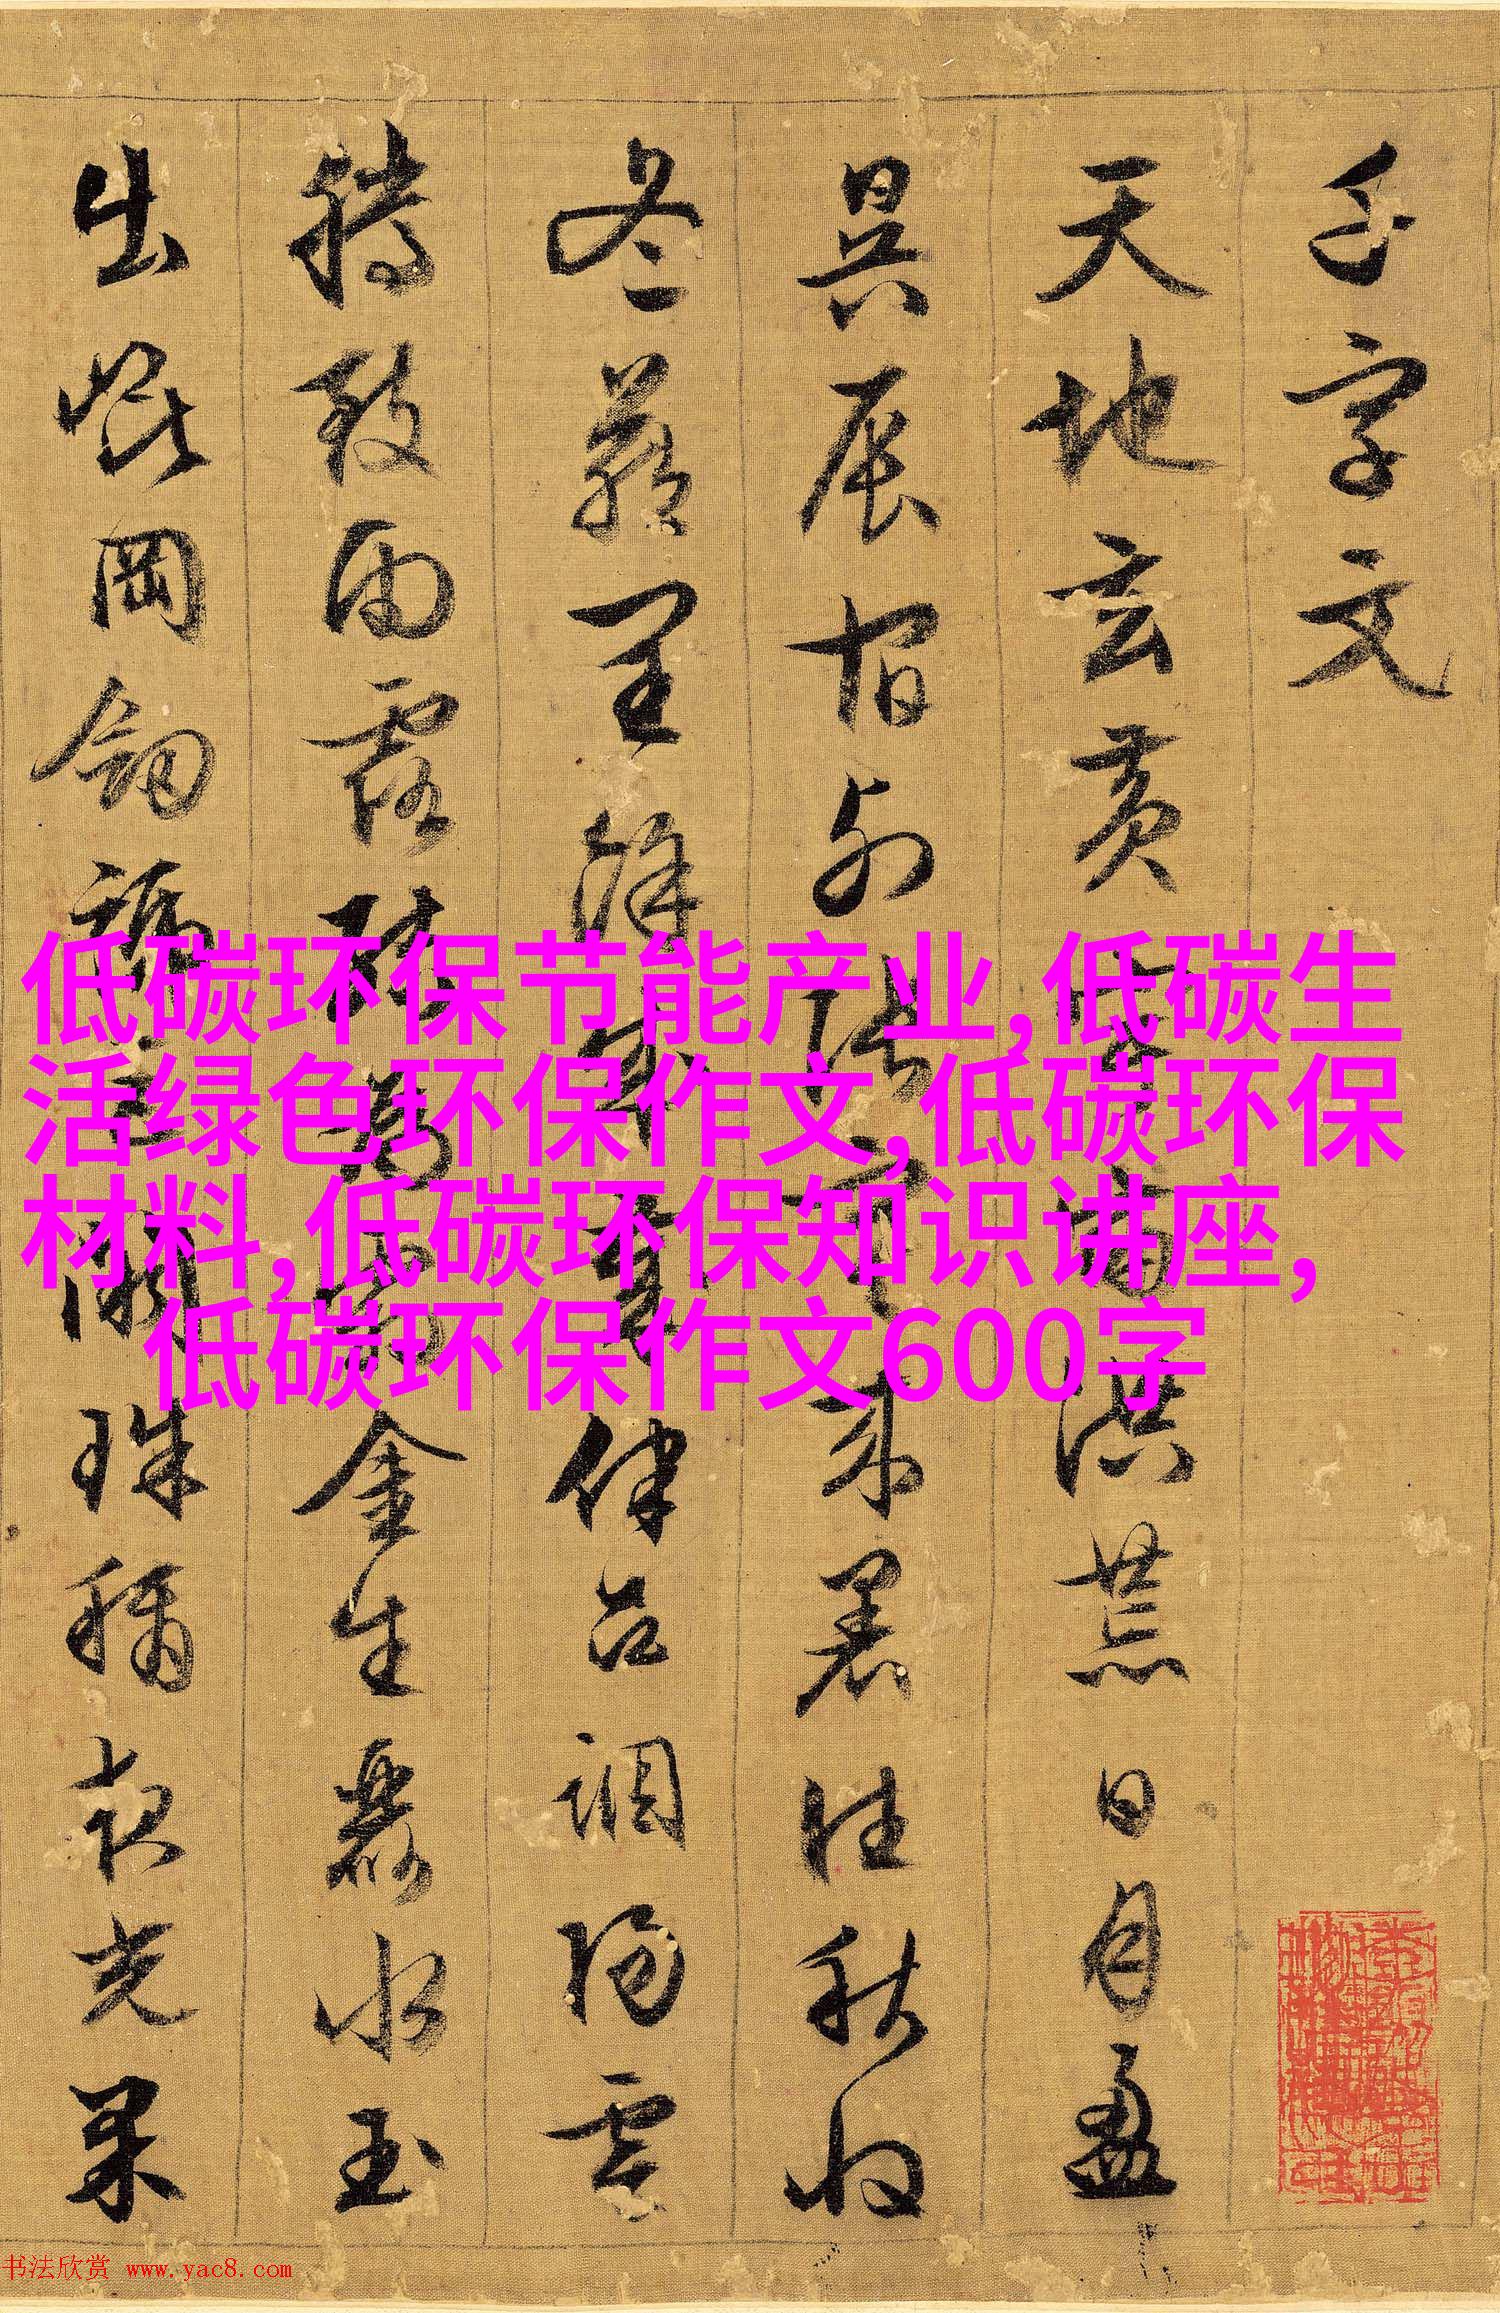 千字文
天地玄黄宇宙洪荒日月盈
昃辰宿列張寒來暑往秋收
冬藏閏餘成歲律吕調陽雲
騰致雨露結為霜金生麗水玉
出崐岡劍號巨闕珠稱夜光果
低碳环保节能产业,低碳生
活绿色环保作文,低碳环保
材料,低碳环保知识讲座,
低碳环保作文600字
书法欣赏 www.yac8.com